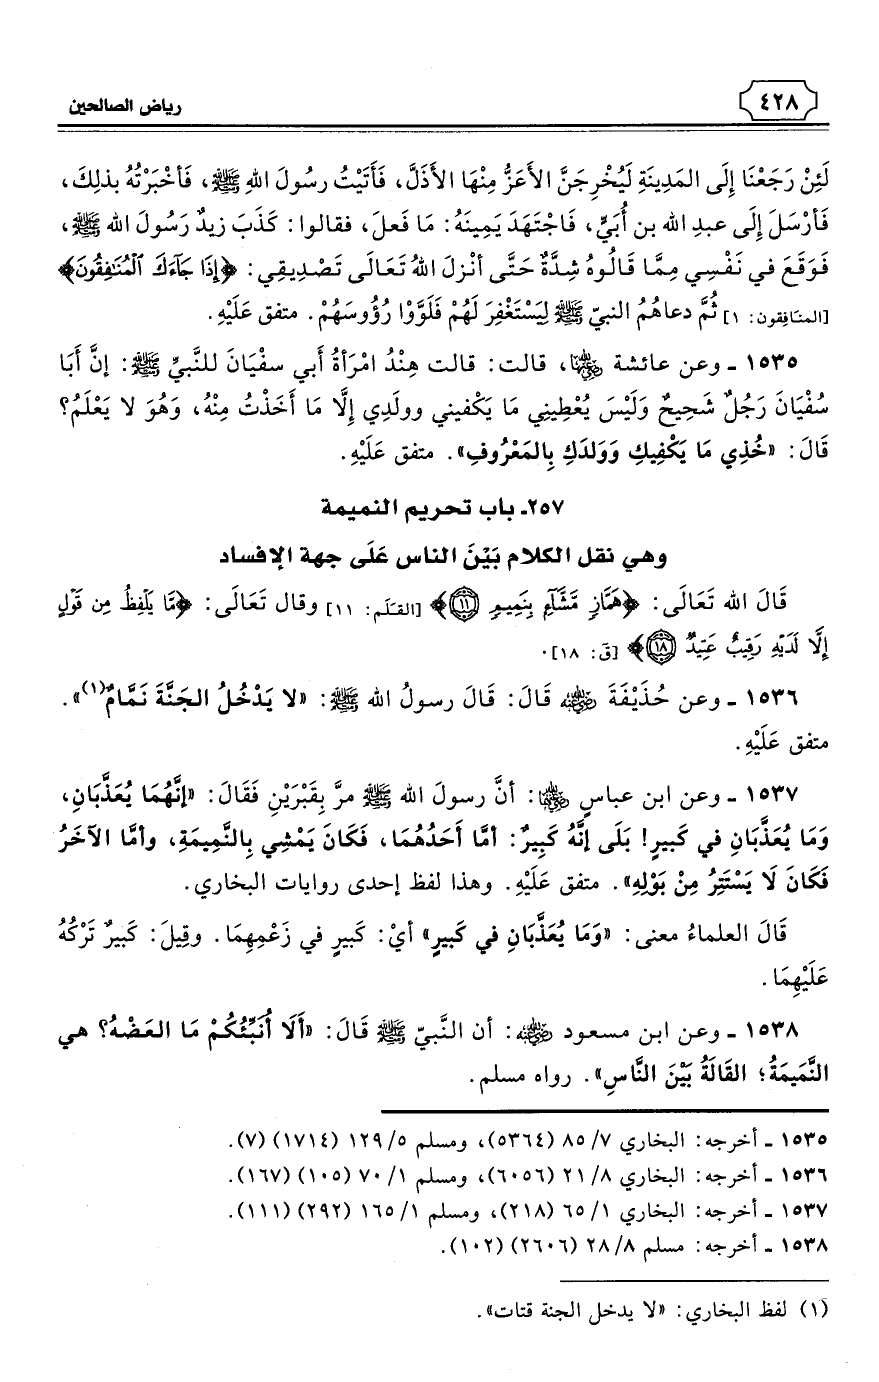 ٤٢٨
رياض الصالحين
لَئِنْ رَجَعْنَا إِلَى المَدِينَةِ لَيُخْرِجَنَّ الأَعَزُّ مِنْهَا الأَذَلَّ، فَأَتَيْتُ رسُولَ اللهِ ﷺ، فَأخْبَرْتُهُ بذلِكَ،
فَأرْسَلَ إِلَى عبدِ الله بن أُبَيٍّ، فَاجْتَهَدَ يَمِينَهُ: مَا فَعلَ، فقالوا: كَذَبَ زيدٌ رَسُولَ الله ﷺ،
فَوَقَعَ في نَفْسِي مِمَّا قَالُوهُ شِدَّةٌ حَتَّى أنْزلَ اللهُ تَعَالَى تَصْدِيقِي: ﴿إِذَا جَآءَكَ ٱلْمُنَٰفِقُونَ﴾
[المنافِقون: ١] ثُمَّ دعاهُمُ النبيّ ﷺ لِيَسْتَغْفِرَ لَهُمْ فَلَوَّوْا رُؤُوسَهُمْ. متفق عَلَيْهِ.
١٥٣٥ ـ وعن عائشة ﵂، قالت: قالت هِنْدُ امْرَأةُ أبي سفْيَانَ للنَّبيِّ ﷺ: إنَّ أبَا
سُفْيَانَ رَجُلٌ شَحِيحٌ وَلَيْسَ يُعْطِينِي مَا يَكْفيني وولَدِي إِلَّا مَا أخَذْتُ مِنْهُ، وَهُوَ لا يَعْلَمُ؟
قَالَ: «خُذِي مَا يَكْفِيكِ وَوَلدَكِ بِالمَعْرُوفِ». متفق عَلَيْهِ.
٢٥٧ـ باب تحريم النميمة
وهي نقل الكلام بَيْنَ الناس عَلَى جهة الإفساد
قَالَ الله تَعَالَى: ﴿هَمَّازٍ مَّشَّآءٍۭ بِنَمِيمٍ ١١﴾ [القَلَم: ١١] وقال تَعَالَى: ﴿مَّا يَلْفِظُ مِن قَوْلٍ
إِلَّا لَدَيْهِ رَقِيبٌ عَتِيدٌ ١٨﴾ [قَ: ١٨].
١٥٣٦ ـ وعن حُذَيْفَةَ ﵁ قَالَ: قَالَ رسولُ الله ﷺ: «لا يَدْخُلُ الجَنَّةَ نَمَّامٌ(١)».
متفق عَلَيْهِ.
١٥٣٧ ـ وعن ابن عباسٍ ﵄: أنَّ رسولَ الله ﷺ مرَّ بِقَبْرَيْنِ فَقَالَ: «إنَّهُمَا يُعَذَّبَانِ،
وَمَا يُعَذَّبَانِ في كَبيرٍ! بَلَى إنَّهُ كَبِيرٌ: أمَّا أَحَدُهُمَا، فَكَانَ يَمْشِي بِالنَّمِيمَةِ، وأمَّا الآخَرُ
فَكَانَ لَا يَسْتَتِرُ مِنْ بَوْلِهِ». متفق عَلَيْهِ. وهذا لفظ إحدى روايات البخاري.
قَالَ العلماءُ معنى: «وَمَا يُعَذَّبَانِ في كَبيرٍ» أيْ: كَبيرٍ في زَعْمِهِمَا. وقِيلَ: كَبيرٌ تَرْكُهُ
عَلَيْهِمَا.
١٥٣٨ ـ وعن ابن مسعود ﵁: أن النَّبيّ ﷺ قَالَ: «ألَا أُنَبِّئُكُمْ مَا العَضْهُ؟ هي
النَّمَيمَةُ؛ القَالَةُ بَيْنَ النَّاسِ». رواه مسلم.
١٥٣٥ ـ أخرجه: البخاري ٧/ ٨٥ (٥٣٦٤)، ومسلم ٥/ ١٢٩ (١٧١٤) (٧).
١٥٣٦ ـ أخرجه: البخاري ٨/ ٢١ (٦٠٥٦)، ومسلم ١/ ٧٠ (١٠٥) (١٦٧).
١٥٣٧ ـ أخرجه: البخاري ١/ ٦٥ (٢١٨)، ومسلم ١/ ١٦٥ (٢٩٢) (١١١).
١٥٣٨ ـ أخرجه: مسلم ٨/ ٢٨ (٢٦٠٦) (١٠٢).
(١) لفظ البخاري: «لا يدخل الجنة قتات».